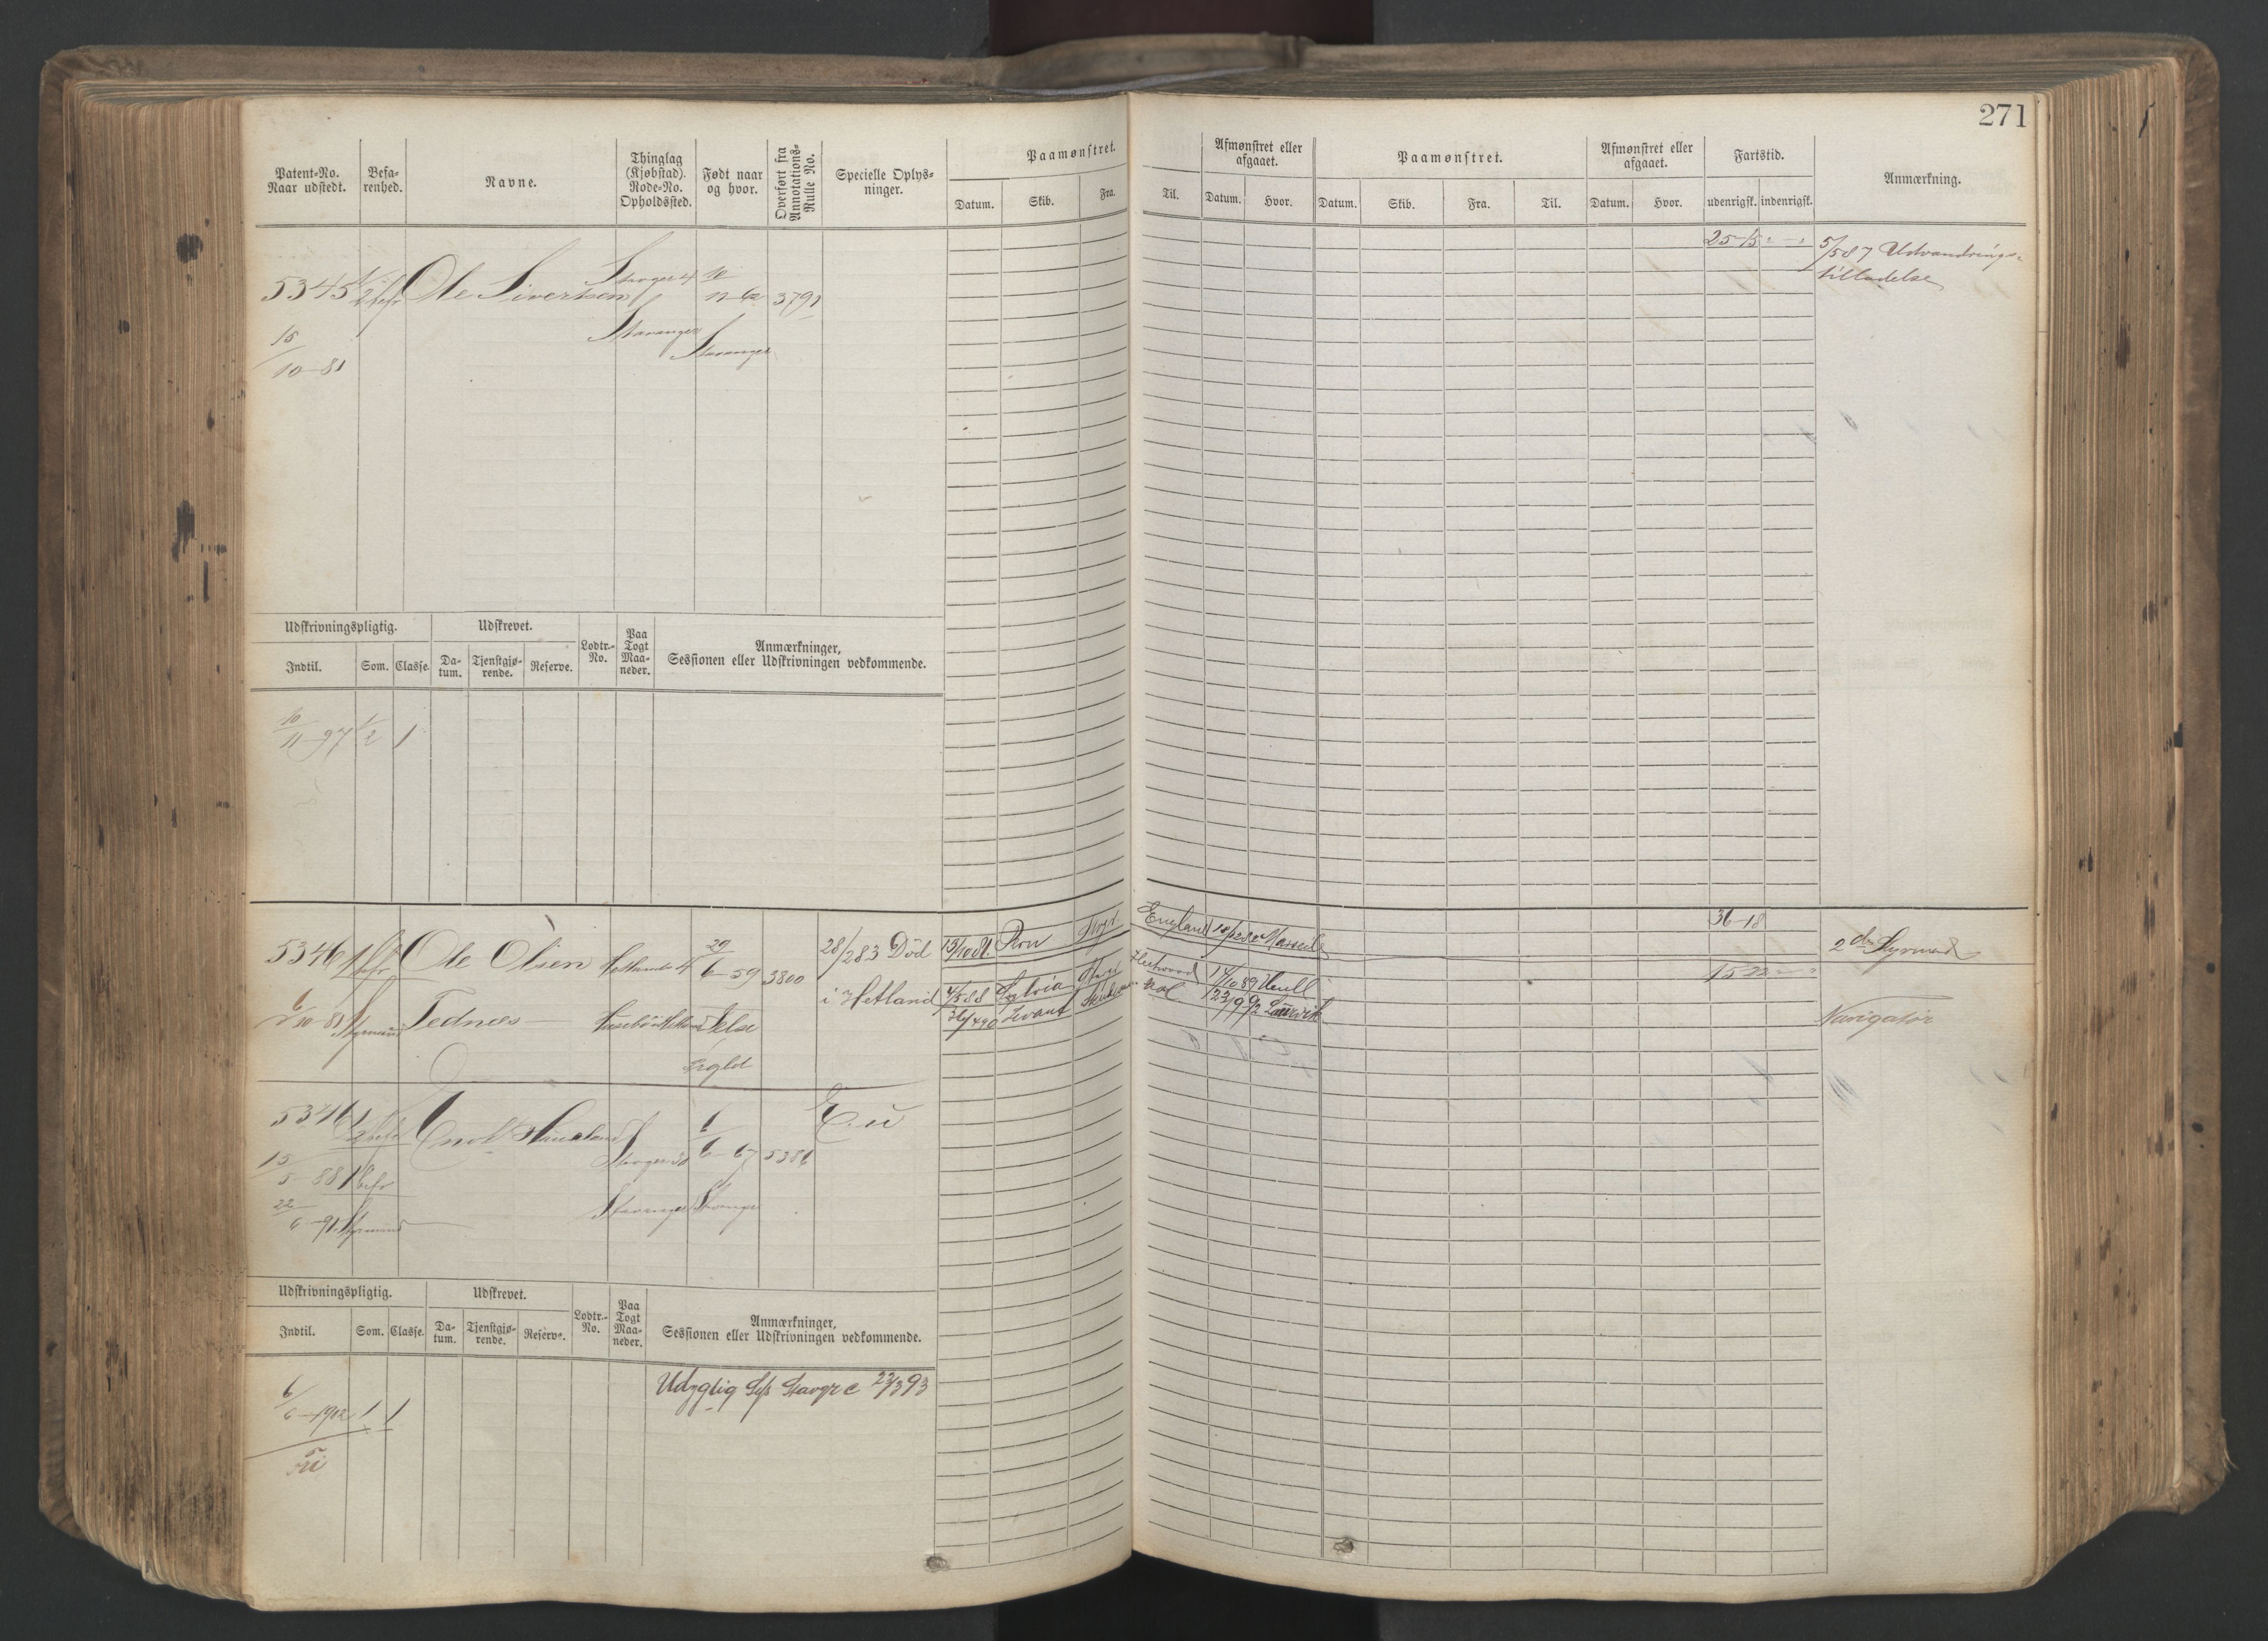 271
Patent-No. Naar udstedt. Befarenhed. Navne. Thinglag (Kjøbstad). Rode-No. Opholdssted. Født naar og hvor. Overført fra Annotations-Rulle No. Specielle Oplysninger. Paamønstret. Afmønstret eller afgaaet. Paamønstret. Afmønstret eller afgaaet. Fartstid. Anmærkning.
Datum. Skib. Fra. Til. Datum. Hvor. Datum. Skib. Fra. Til. Datum. Hvor. udenrigsk. indenrigsk.
5345 1/2 befr Ole Sivertsen Stavger 4 10/11-62 3791 25-15 5/5 87 Udvandrings-
tilladelse
15/10-81 Stavanger Stavanger
Udskrivningspligtig. Udskrevet. Lodtr.-No. Paa Togt Maaneder. Anmærkninger, Sessionen eller Udskrivningen vedkommende.
Indtil. Som. Classe. Datum. Tjenstgjørende. Reserve.
10/11-97 1/2 1
5346 1 befr Ole Olsen 29/6-59 3800 28/2 83 Död 15/10 81. England 36-18 2den Styrmand
i Hetland 4/5 88 Sylvia 14/10 89 Hull 15-22
6/10-81 Styrmand Tednes Jelse Levant 23/9 92 Navigatör
5346 Stavger 6/6-67 5386 E. u
15/5-88 1 befr
22/6-91 Styrmand Stavanger Stavanger
Udskrivningspligtig. Udskrevet. Lodtr.-No. Paa Togt Maaneder. Anmærkninger, Sessionen eller Udskrivningen vedkommende.
Indtil. Som. Classe. Datum. Tjenstgjørende. Reserve.
6/6-1902 1 1 Udygtig Stavgr 23/3 93